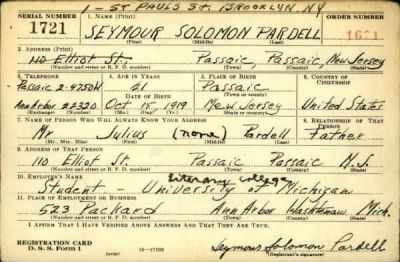 1 - ST PAULS ST. BROOKLYN, NY
SERIAL NUMBER 1. NAME (Print) ORDER NUMBER
1721 SEYMOUR SOLOMON PARDELL 1671
(First) (Middle) (Last)
2. ADDRESS (Print)
110 Elliot St. Passaic, Passaic, New Jersey
(Number and street or R. F. D. number) (Town) (County) (State)
3. TELEPHONE 4. AGE IN YEARS 5. PLACE OF BIRTH 6. COUNTRY OF CITIZENSHIP
Passaic 2-4750W 21 Passaic
DATE OF BIRTH (Town or county)
Ann Arbor 22320 Oct 15, 1919 New Jersey United States
(Exchange) (Number) (Mo.) (Day) (Yr.) (State or country)
7. NAME OF PERSON WHO WILL ALWAYS KNOW YOUR ADDRESS 8. RELATIONSHIP OF THAT PERSON
Mr Julius (none) Pardell Father
(Mr., Mrs., Miss) (First) (Middle) (Last)
9. ADDRESS OF THAT PERSON
110 Elliot St. Passaic Passaic N.J.
(Number and street or R. F. D. number) (Town) (County) (State)
10. EMPLOYER'S NAME
Literary College
Student - University of Michigan
11. PLACE OF EMPLOYMENT OR BUSINESS
523 Packard Ann Arbor Washtenaw Mich.
(Number and street or R. F. D. number) (Town) (County) (State)
I AFFIRM THAT I HAVE VERIFIED ABOVE ANSWERS AND THAT THEY ARE TRUE.
REGISTRATION CARD
D. S. S. Form 1 Seymour Solomon Pardell
(Registrant's signature)